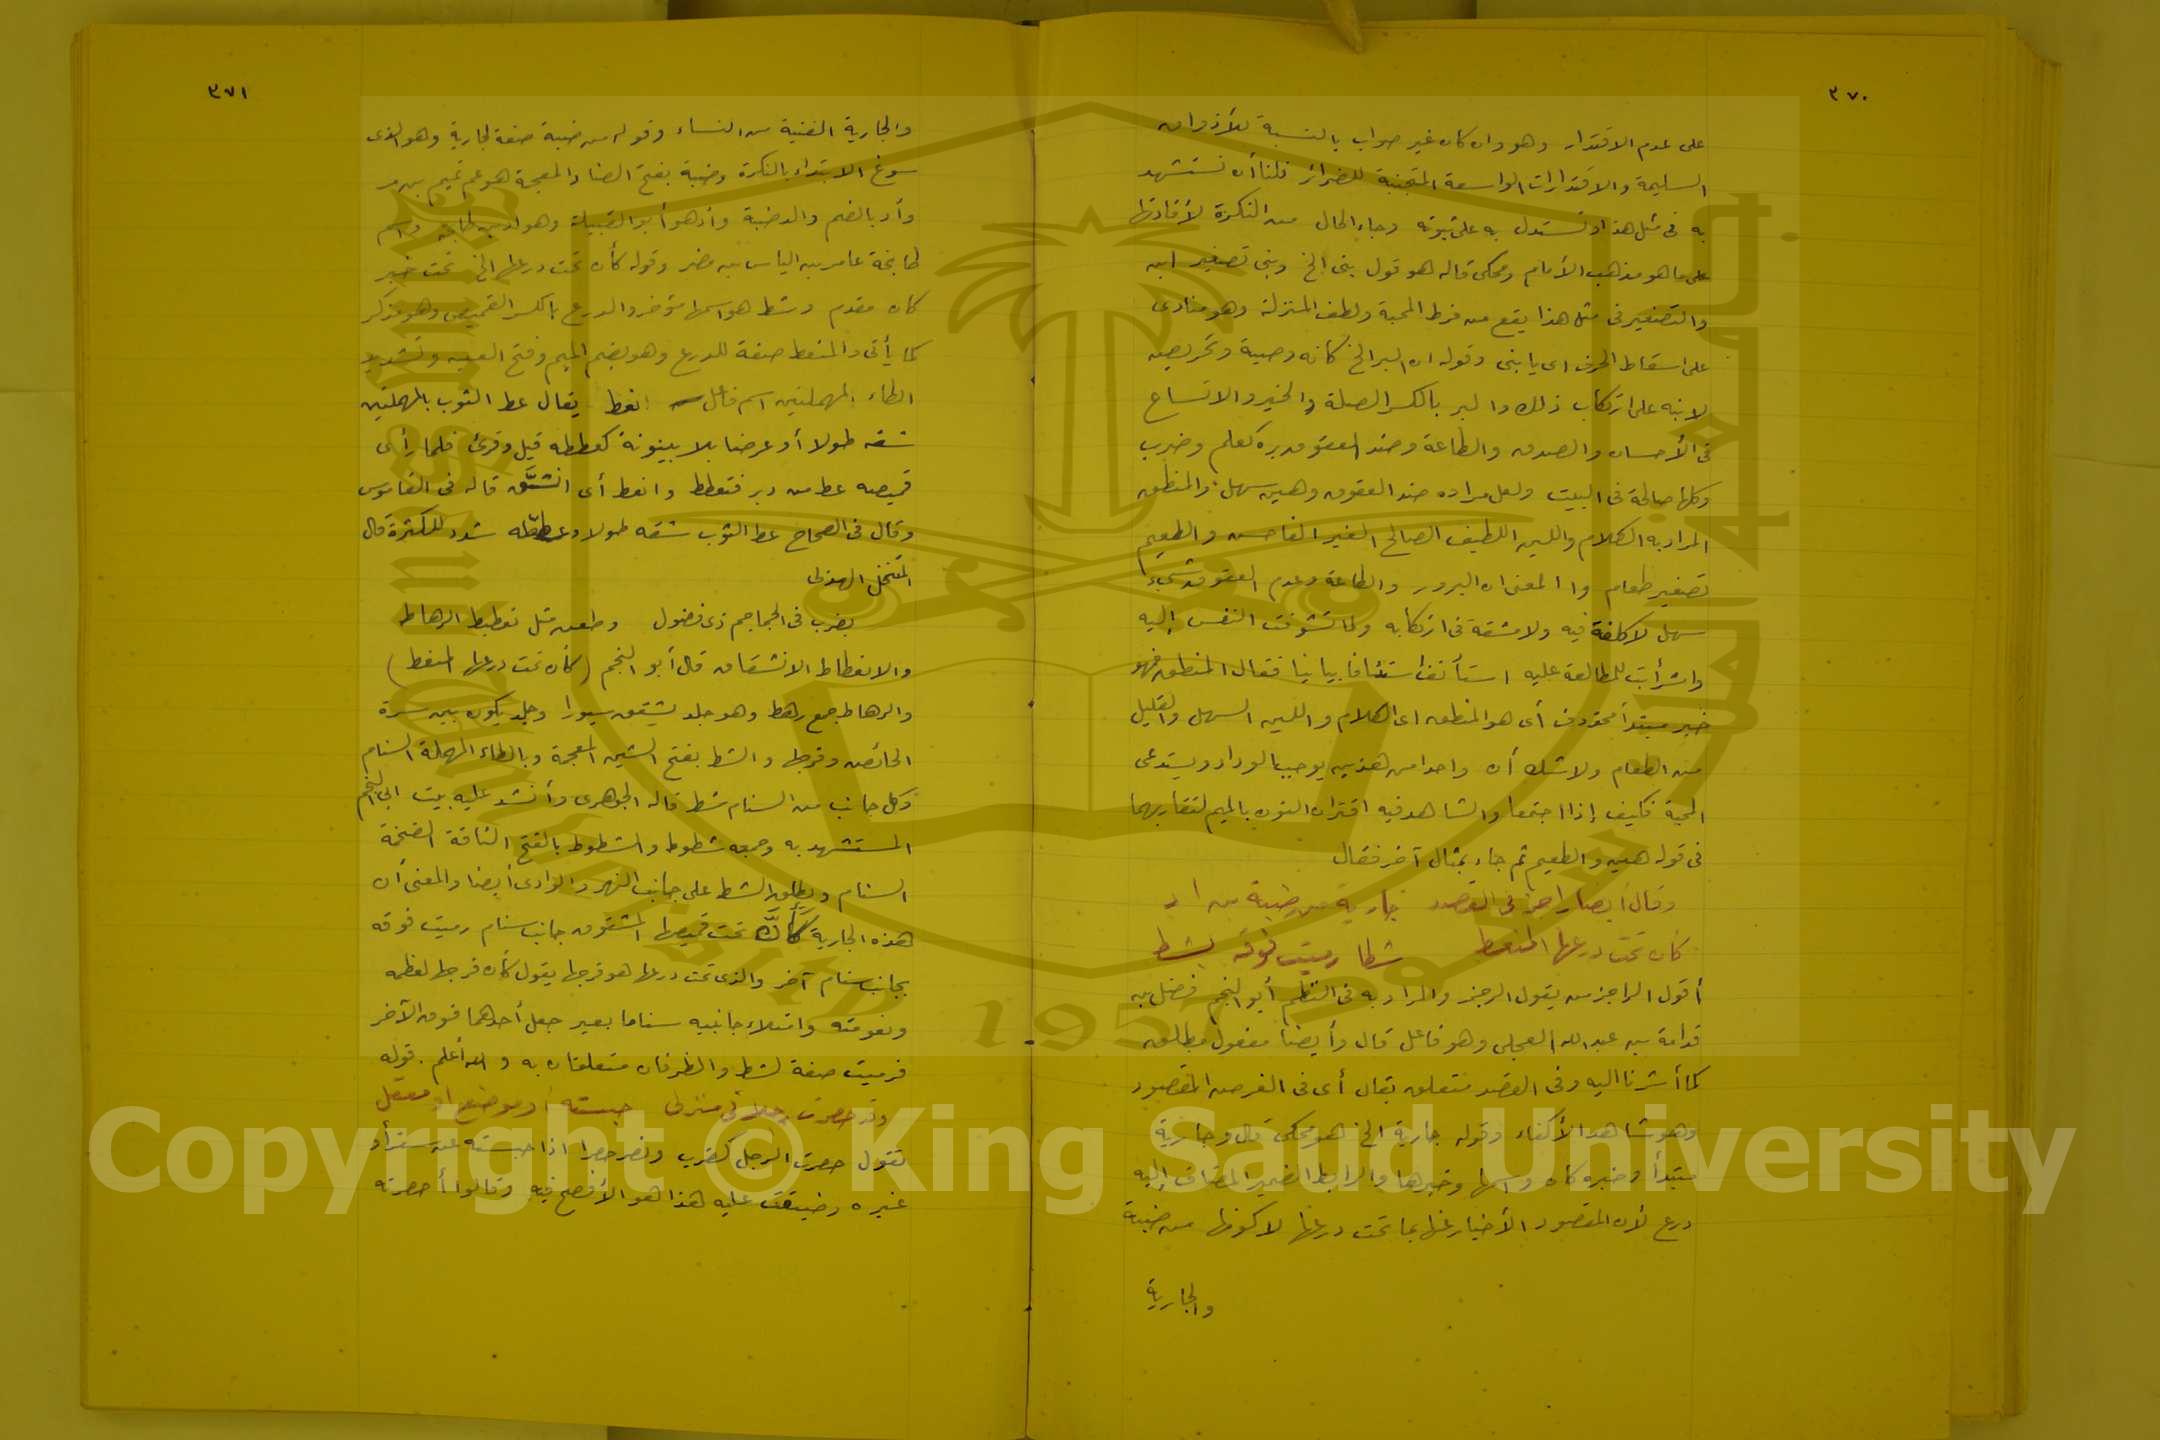 ٣٧٠
على عدم الاقتدار وهو وان كان غير صواب بالنسبة للأذواق
السليمة والاقتدارات الواسعة المتجنبة للضرائر فلنا أن نستشهد
به فى مثل هذا ونستدل به على ثبوته وجاء الحال من النكرة لأفادتها
على ما هو مذهب الأمام ومحكى قاله هو قول بنى الخ وبنى تصغير ابن
والتصغير فى مثل هذا يقع من فرط المحبة ولطف المنزلة وهو منادى
على اسقاط الحرف اى يا بنى وقوله ان البر الخ كأنه وصية وتحريص
لابنه على ارتكاب ذلك والبر بالكسر الصلة والخير والاتساع
فى الأحسان والصدق والطاعة وضد العقوق بره كعلم وضرب
وكلها صالحة فى البيت ولعل مراده ضد العقوق وهين سهل والمنطق
المراد به الكلام واللين اللطيف الصالح الغير الفاحش والطعيم
تصغير طعام والمعنى ان البرور والطاعة وعدم العقوق شىء
سهل لا كلفة فيه ولا مشقة فى ارتكابه ولما تشوفت النفس إليه
واشرأبت للمطالعة عليه استأنف استئنافا بيانيا فقال المنطق فهو
خبر مبتدأ محذوف أى هو المنطق اى الكلام واللين السهل والقليل
من الطعام ولا شك أن واحدا من هذين يوجب الوداد ويستدعى
المحبة فكيف إذا اجتمعا والشاهد فيه اقتران النون بالميم لتقاربهما
فى قوله هين والطعيم ثم جاء بمثال آخر فقال
وقال أيضا راجز فى القصد جارية من ضبة بن اد
كأن تحت درعها المنعط شطا رميت فوقه بشط
أقول الراجز من يقول الرجز والمراد به فى النظم أبو النجم فضل بن
قدامة بن عبد الله العجلى وهو فاعل قال وأيضا مفعول مطلق
كما أشرنا اليه وفى القصد متعلق بقال أى فى الغرض المقصود
وهو شاهد الأكفاء وقوله جارية الخ هو محكى قال وجارية
مبتدأ وخبره كان واسمها وخبرها والرابط الضمير المضاف إليه
درع لأن المقصود الأخبار عنها بما تحت درعها لا كونها من ضبة
والجارية
٣٧١
والجارية الفتية من النساء وقوله من ضبة صفة لجارية وهو الذى
سوغ الابتداء بالنكرة وضبة بفتح الضاد المعجمة هو عم تميم بن مر
وأد بالضم والد ضبة وأد هو أبو القبيلة وهو اد بن طابخة واسم
طابخة عامر بن الياس بن مضر وقوله كأن تحت درعها الخ تحت خبر
كان مقدم وشط هو اسمها مؤخر والدرع بالكسر القميص وهو مذكر
كما يأتى والمنعط صفة للدرع وهو بضم الميم وفتح العين وتشديد
الطاء المهملتين اسم فاعل انعط يقال عط الثوب بالمهملتين
شقه طولا أو عرضا بلا بينونة كعططه قيل وقرئ فلما رأى
قميصه عط من دبر فتعطط وانعط أى انشق قاله فى القاموس
وقال فى الصحاح عط الثوب شقه طولا وعططه شدد للكثرة قال
المتنخل الهذلى
بضرب فى الجماجم ذى فضول وطعن مثل تعطيط الرهاط
والانعطاط الانشقاق قال أبو النجم (كأن تحت درعها المنعط)
والرهاط جمع رهط وهو جلد يشقق سيورا وجلد يكون بين سرة
الحائض وفرجها والشط بفتح الشين المعجمة وبالطاء المهملة السنام
وكل جانب من السنام شط قاله الجوهرى وأنشد عليه بيت ابى النجم
المستشهد به وجمعه شطوط والشطوط بالفتح الناقة الضخمة
السنام ويطلق الشط على جانب النهر والوادى أيضا والمعنى أن
هذه الجارية كأن تحت قميصها المشقوق جانب سنام رميت فوقه
بجانب سنام آخر والذى تحت درعها هو فرجها يقول كأن فرجها لعظمه
ونعومته وامتلاء جانبيه سناما بعير جعل أحدهما فوق الآخر
فرميت صفة لشط والظرفان متعلقان به والله أعلم. قوله
وقد حصرت رجلا فى منزلى حبسته اد موضع او معقل
تقول حصرت الرجل كضرب ونصر حصرا اذا حبسته عن سفر أو
غيره وضيقت عليه هذا هو الأفصح فيه وقالوا أحصرته